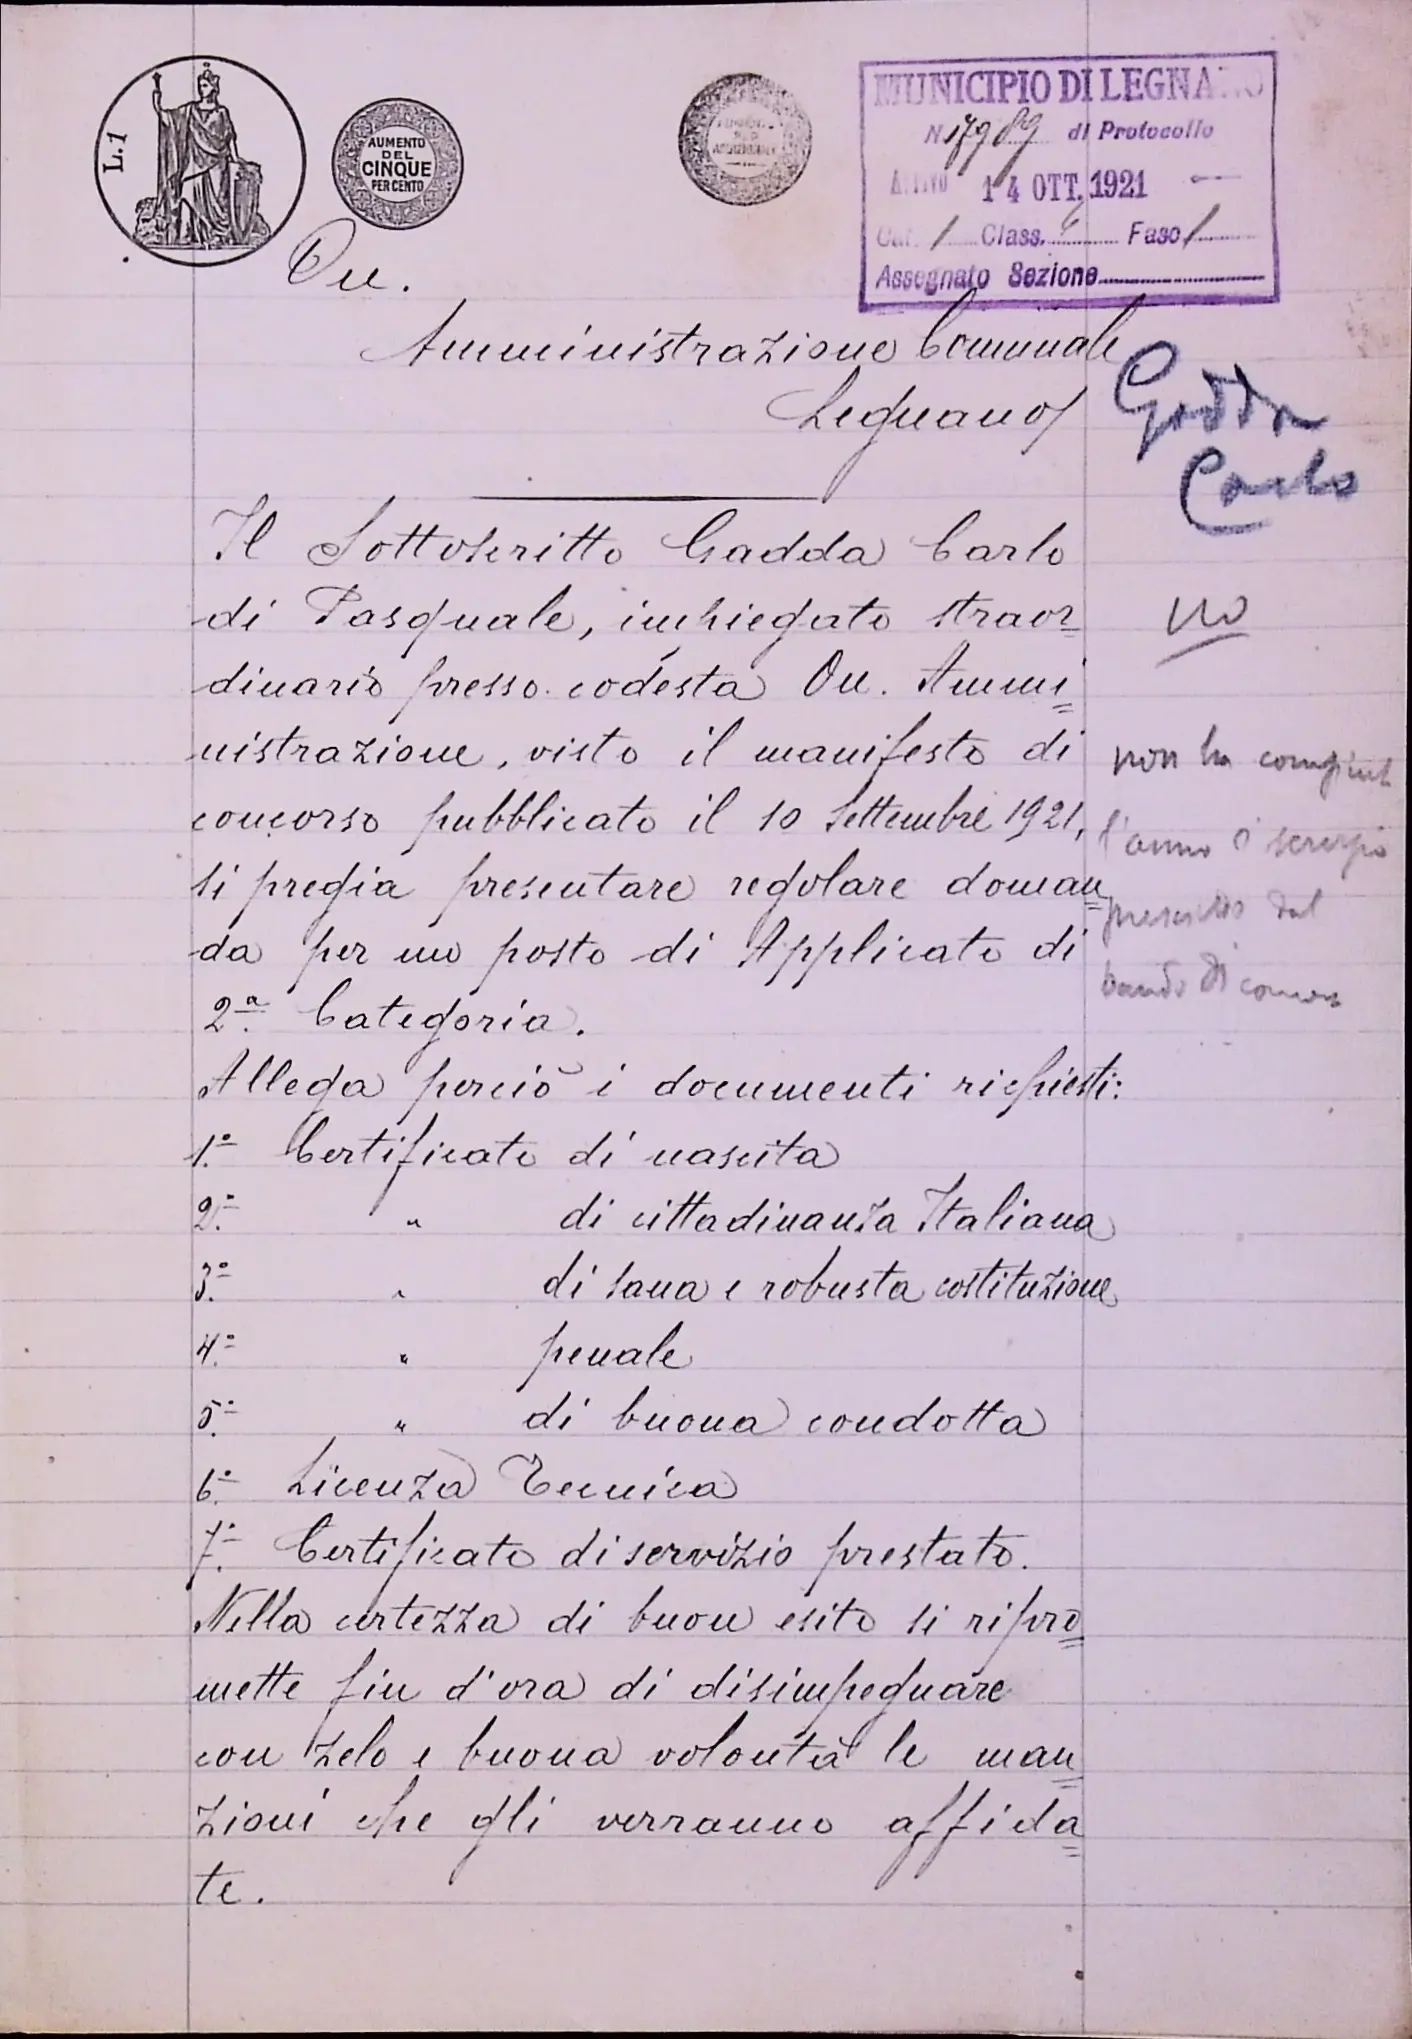 L. 1
AUMENTO
DEL
CINQUE
PER CENTO
MUNICIPIO DI LEGNANO
N. 17989 di Protocollo
ARRIVO 14 OTT. 1921
Cat. 1 Class. 6 Fasc 1
Assegnato Sezione
On.
Amministrazione Comunale
Legnano
Gadda
Carlo
Il Sottoscritto Gadda Carlo
di Pasquale, impiegato straor=
dinario presso codesta On. Ammi=
nistrazione, visto il manifesto di
concorso pubblicato il 10 Settembre 1921,
si pregia presentare regolare doman=
da per un posto di Applicato di
2ª Categoria.
Allega perciò i documenti richiesti:
1.° Certificato di nascita
2.° " di cittadinanza Italiana
3.° " di sana e robusta costituzione
4.° " penale
5.° " di buona condotta
6.° Licenza Tecnica
7.° Certificato di servizio prestato.
Nella certezza di buon esito si ripro=
mette fin d'ora di disimpegnare
con zelo e buona volontà le man=
zioni che gli verranno affida=
te.
no
non ha compiuto
l'anno di servizio
prescritto dal
bando di concorso